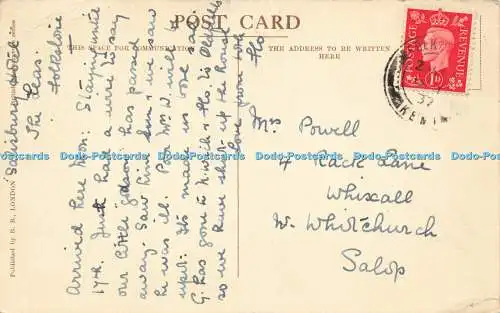 POST CARD
THIS SPACE FOR COMMUNICATION
THE ADDRESS TO BE WRITTEN
HERE
Published by B. B., LONDON
Salisbury Hotel
The Leas
Folkestone
Arrived here Mon: Staying until
17th. Just had a wire to say
our little godson has passed
away. Saw him, we saw
he was ill. Poor Mrs W. will be
upset. It's made us
G. has gone to N. with Flo. to
so we have shut up the House
Love from both
Flo
POSTAGE
REVENUE
1D
KENT
37
Mrs Powell
4 Rack Lane
Whixall
W. Whitchurch
Salop
Dodo-Postcards Dodo-Postcards Dodo-Postcards Dodo-Postcards Dodo-Postcards